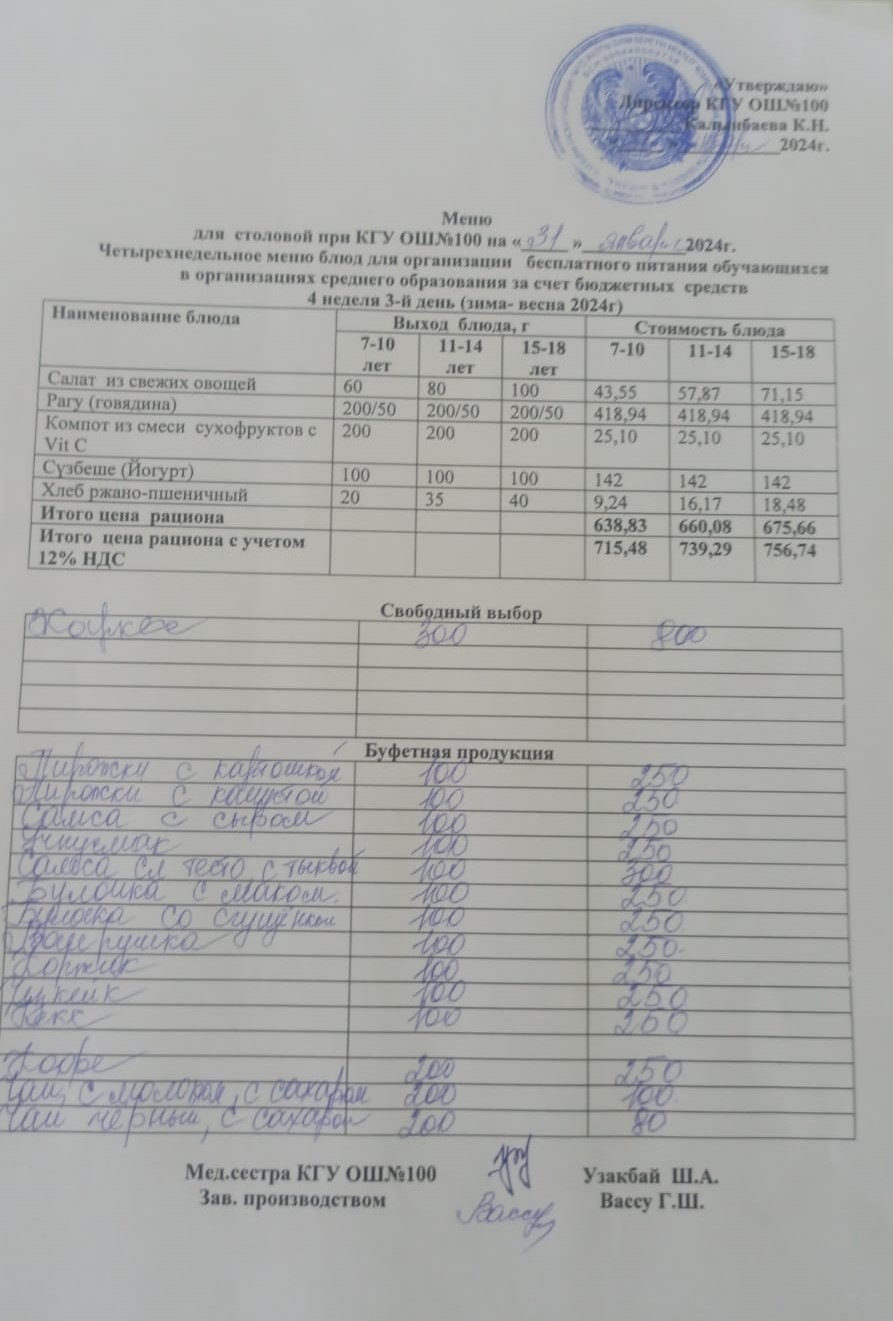 «Утверждаю»
Директор КГУ ОШ№100
Калымбаева К.Н.
2024г.
Меню
для столовой при КГУ ОШ№100 на « 31 » января 2024г.
Четырехнедельное меню блюд для организации бесплатного питания обучающихся
в организациях среднего образования за счет бюджетных средств
4 неделя 3-й день (зима- весна 2024г)
Наименование блюда Выход блюда, г Стоимость блюда
7-10 лет 11-14 лет 15-18 лет 7-10 11-14 15-18
Салат из свежих овощей 60 80 100 43,55 57,87 71,15
Рагу (говядина) 200/50 200/50 200/50 418,94 418,94 418,94
Компот из смеси сухофруктов с Vit C 200 200 200 25,10 25,10 25,10
Сүзбеше (Йогурт) 100 100 100 142 142 142
Хлеб ржано-пшеничный 20 35 40 9,24 16,17 18,48
Итого цена рациона 638,83 660,08 675,66
Итого цена рациона с учетом 12% НДС 715,48 739,29 756,74
Свободный выбор
300 800
Буфетная продукция
Пирожки с картошкой 100 250
Пирожки с капустой 100 250
Самса с сыром 100 250
100 250
Самса сл тесто с тыквой 100 300
Булочка с маком 100 250
Булочка со сгущёнкой 100 250
100 250
Коржик 100 250
Чизкейк 100 250
Кекс 100 250
Кофе 200 250
Чай с молоком, с сахаром 200 100
Чай чёрный, с сахаром 200 80
Мед.сестра КГУ ОШ№100 Узакбай Ш.А.
Зав. производством Вассу Вассу Г.Ш.